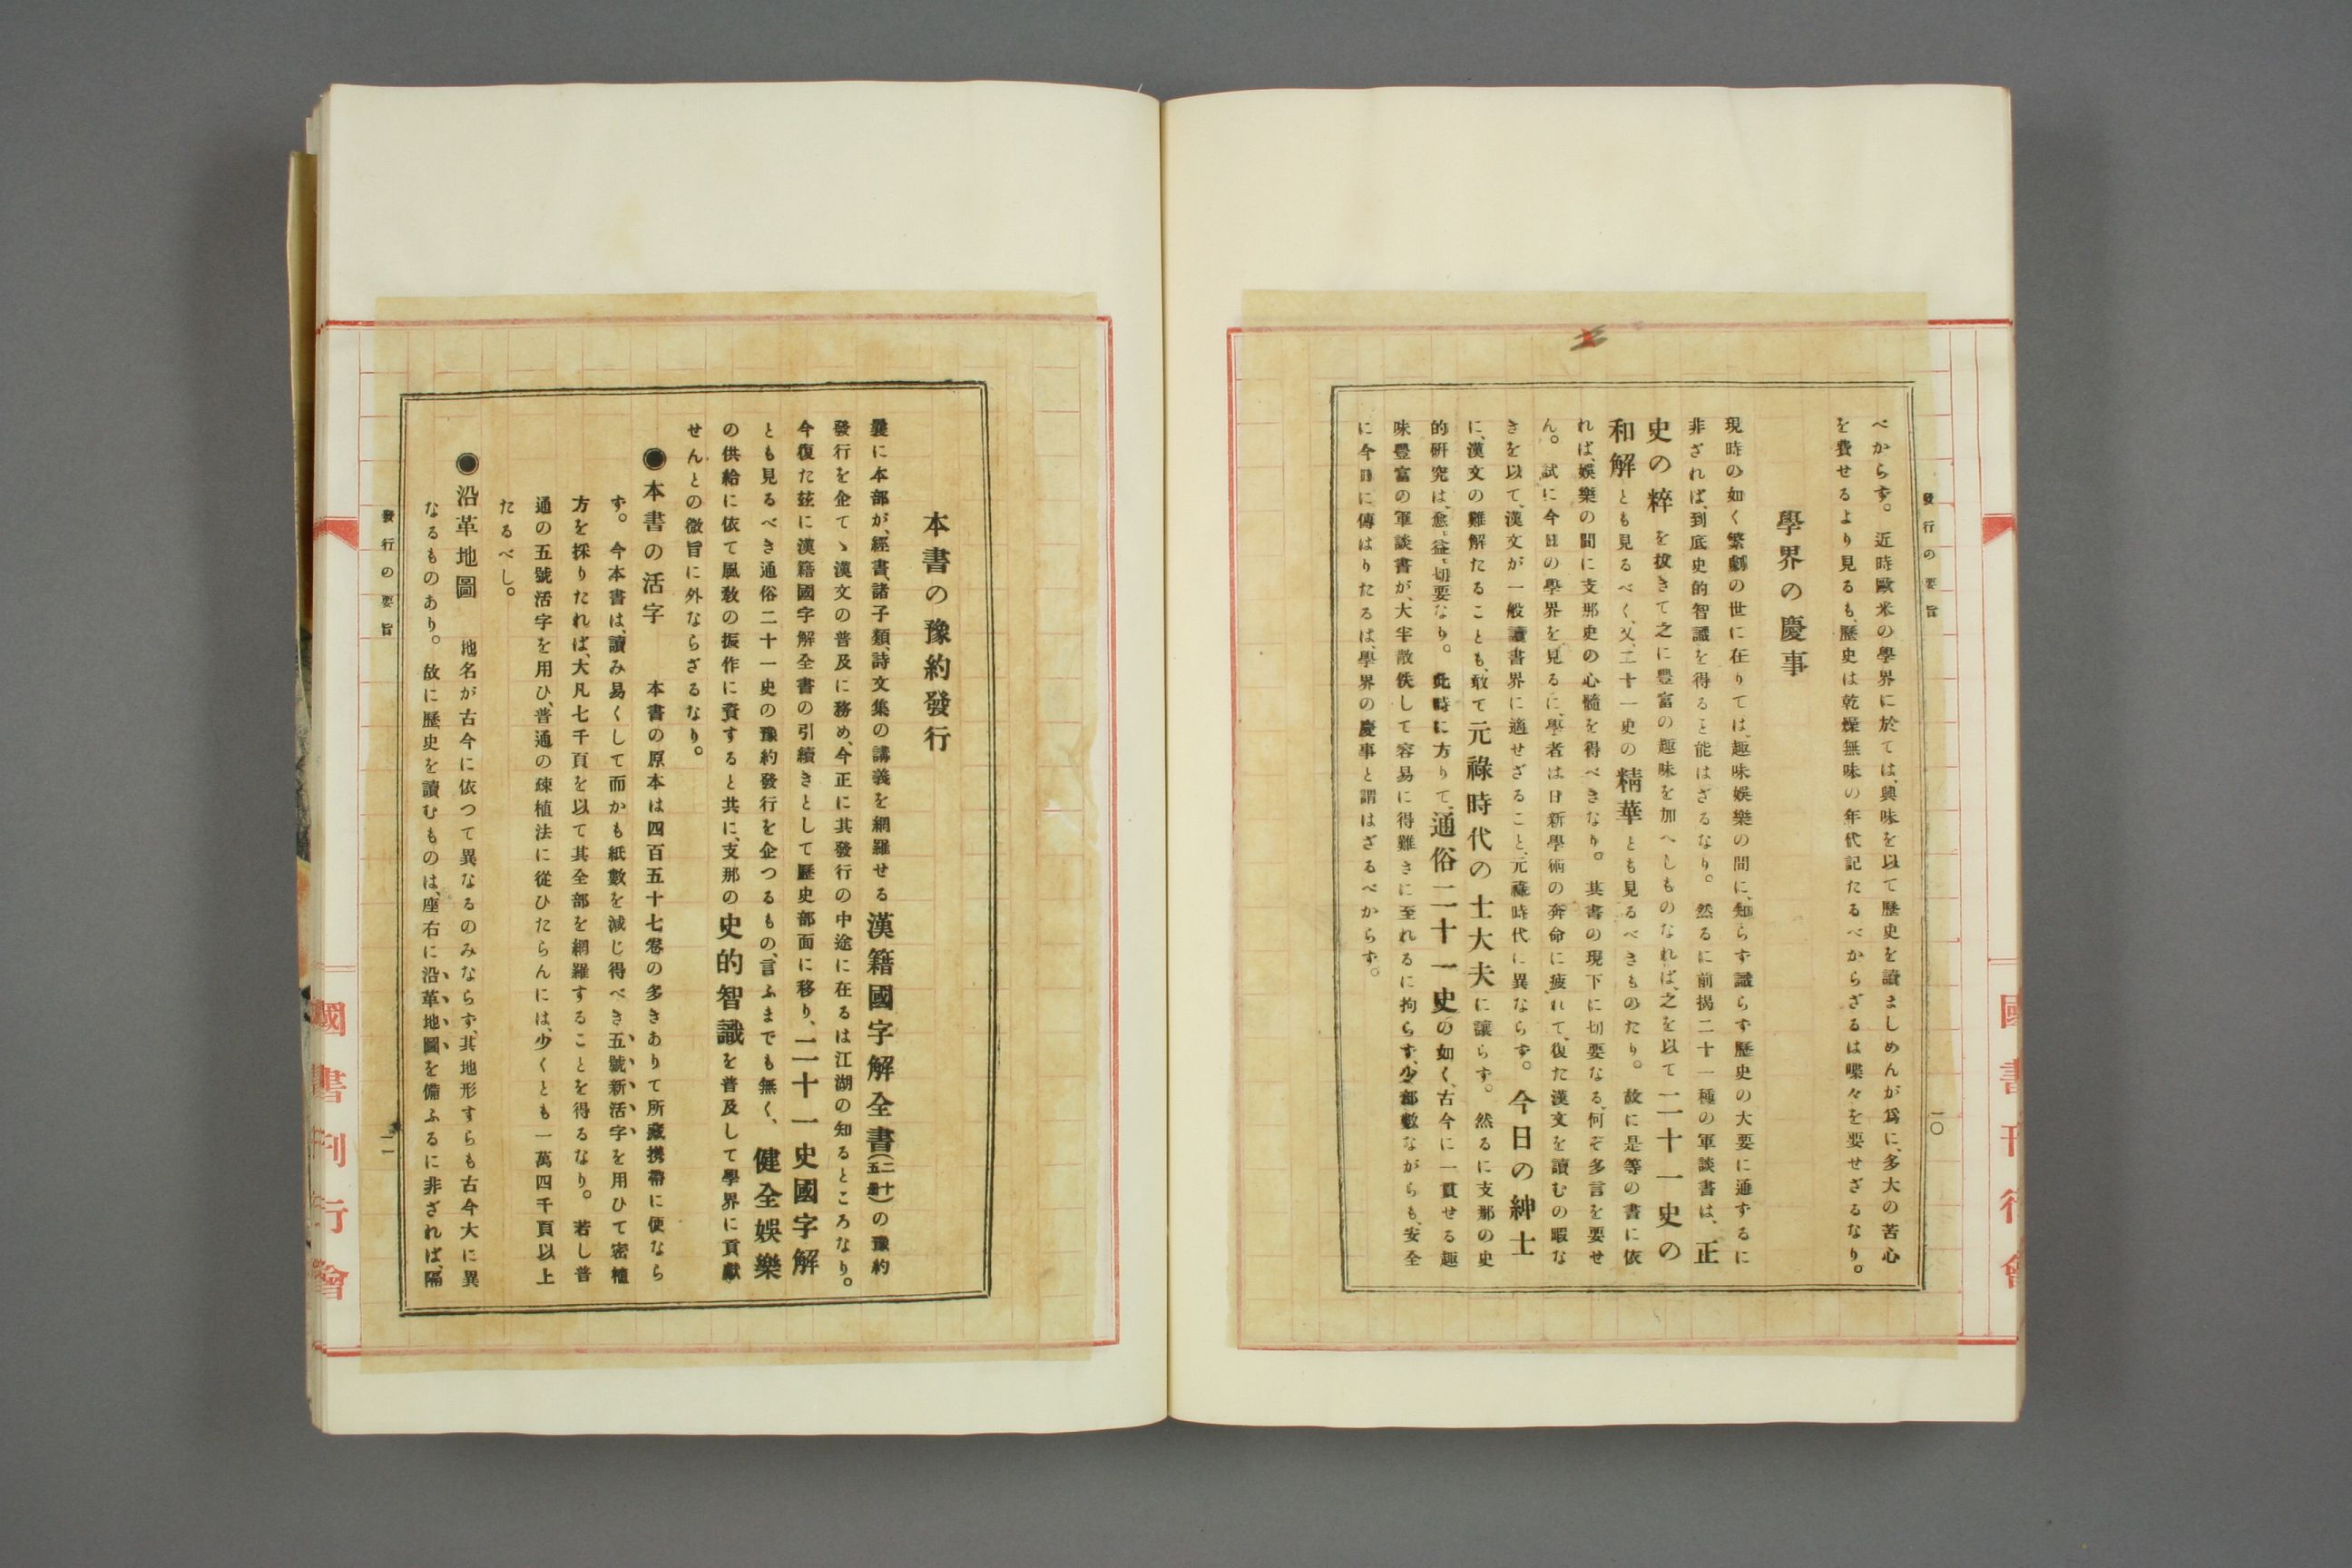 發行の要旨
一〇
べからず。近時歐米の學界に於ては、興味を以て歴史を讀ましめんが爲に、多大の苦心
を費せるより見るも、歴史は乾燥無味の年代記たるべからざるは喋々を要せざるなり。
學界の慶事
現時の如く繁劇の世に在りては、趣味娯樂の間に、知らず識らず歴史の大要に通ずるに
非ざれば、到底史的智識を得ると能はざるなり。然るに前揭二十一種の軍談書は、正
史の粹を拔きて之に豐富の趣味を加へしものなれば、之を以て二十一史の
和解とも見るべく、又、二十一史の精華とも見るべきものたり。故に是等の書に依
れば、娯樂の間に支那史の心髓を得べきなり。其書の現下に切要なる、何ぞ多言を要せ
ん。試に今日の學界を、見るに、學者は日新學術の奔命に疲れて、復た漢文を讀むの暇な
きを以て、漢文が一般讀書界に適せざること、元祿時代に異ならず。今日の紳士
に、漢文の難解たることも、敢て元祿時代の士大夫に讓らず。然るに支那の史
的研究は、愈〻益〻切要なり。此時に方りて、通俗二十一史の如く、古今に一貫せる趣
味豐富の軍談書が、大半散佚して容易に得難きに至れるに拘らず、少部數ながらも、安全
に今日に傳はりたるは、學界の慶事と謂はざるべからず。
國書刊行會
本書の豫約發行
曩に本部が、經書、諸子類、詩文集の講義を網羅せる漢籍國字解全書(二十五册)の豫約
發行を企てゝ漢文の普及に務め、今正に其發行の中途に在るは江湖の知るところなり。
今復た玆に漢籍國字解全書の引續きとして歴史部面に移り、二十一史國字解
とも見るべき通俗二十一史の豫約發行を企つるもの、言ふまでも無く、健全娯樂
の供給に依て風敎の振作に資すると共に、支那の史的智識を普及して學界に貢獻
せんとの微旨に外ならざるなり。
◉本書の活字 本書の原本は四百五十七卷の多きありて所藏携帶に便なら
ず。今本書は、讀み易くして而かも紙數を減じ得べき五號新活字を用ひて密植
方を採りたれば、大凡七千頁を以て其全部を網羅することを得るなり。若し普
通の五號活字を用ひ、普通の疎植法に從ひたらんには、少くとも一萬四千頁以上
たるべし。
◉沿革地圖 地名が古今に依つて異なるのみならず、其地形すらも古今大に異
なるものあり。故に歴史を讀むものは、座右に沿革地圖を備ふるに非ざれば、隔
發行の要旨
一一
國書刊行會